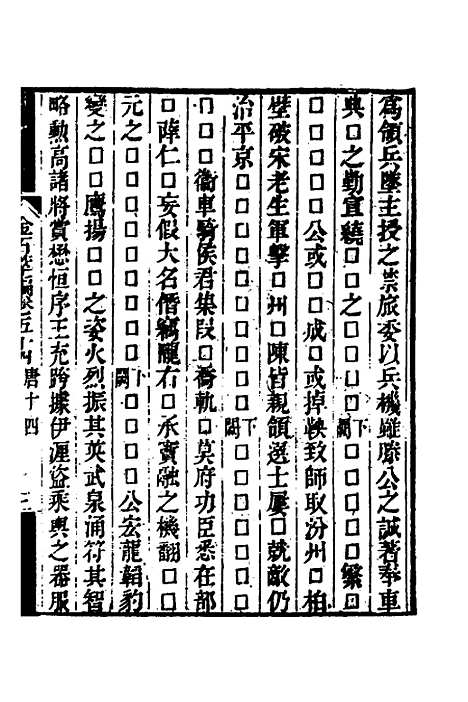 為領兵壂主授之禁旅委以兵機雖滕公之誠著奉車
典□之勤宣繞□□□之□□□□下闕□□□□繁□
□□□□□公或□□成□或掉鞅致師取汾州□柏
壁破宋老生軍擊□州□陳皆親領選士屢□就敵仍
治平京□□□□□□□□□□下闕□□□□□□□
□□□□衞車騎侯君集段□喬軌□莫府功臣悉在部
□薛仁□妄假大名僭竊隴右□承竇融之機翻□□
元之□□□□□□□□下闕□□□□□公宏龍韜豹
變之□□□鷹揚□□之姿火烈振其英武泉涌符其智
略勳高諸將賞懋恒序王充跨據伊瀍盜乘輿之器服
金石萃編卷五十四 唐十四 三